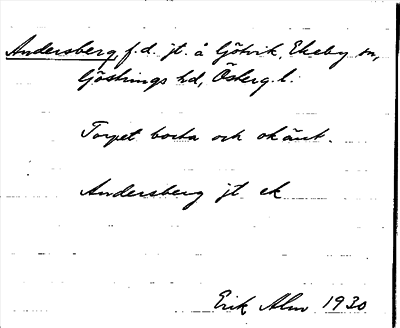 Andersberg, f.d. jt. å Götvik, Ekeby sn,
Göstrings hd, Österg. l.
Torpet borta och okänt.
Andersberg jt ek
Erik Alm 1930